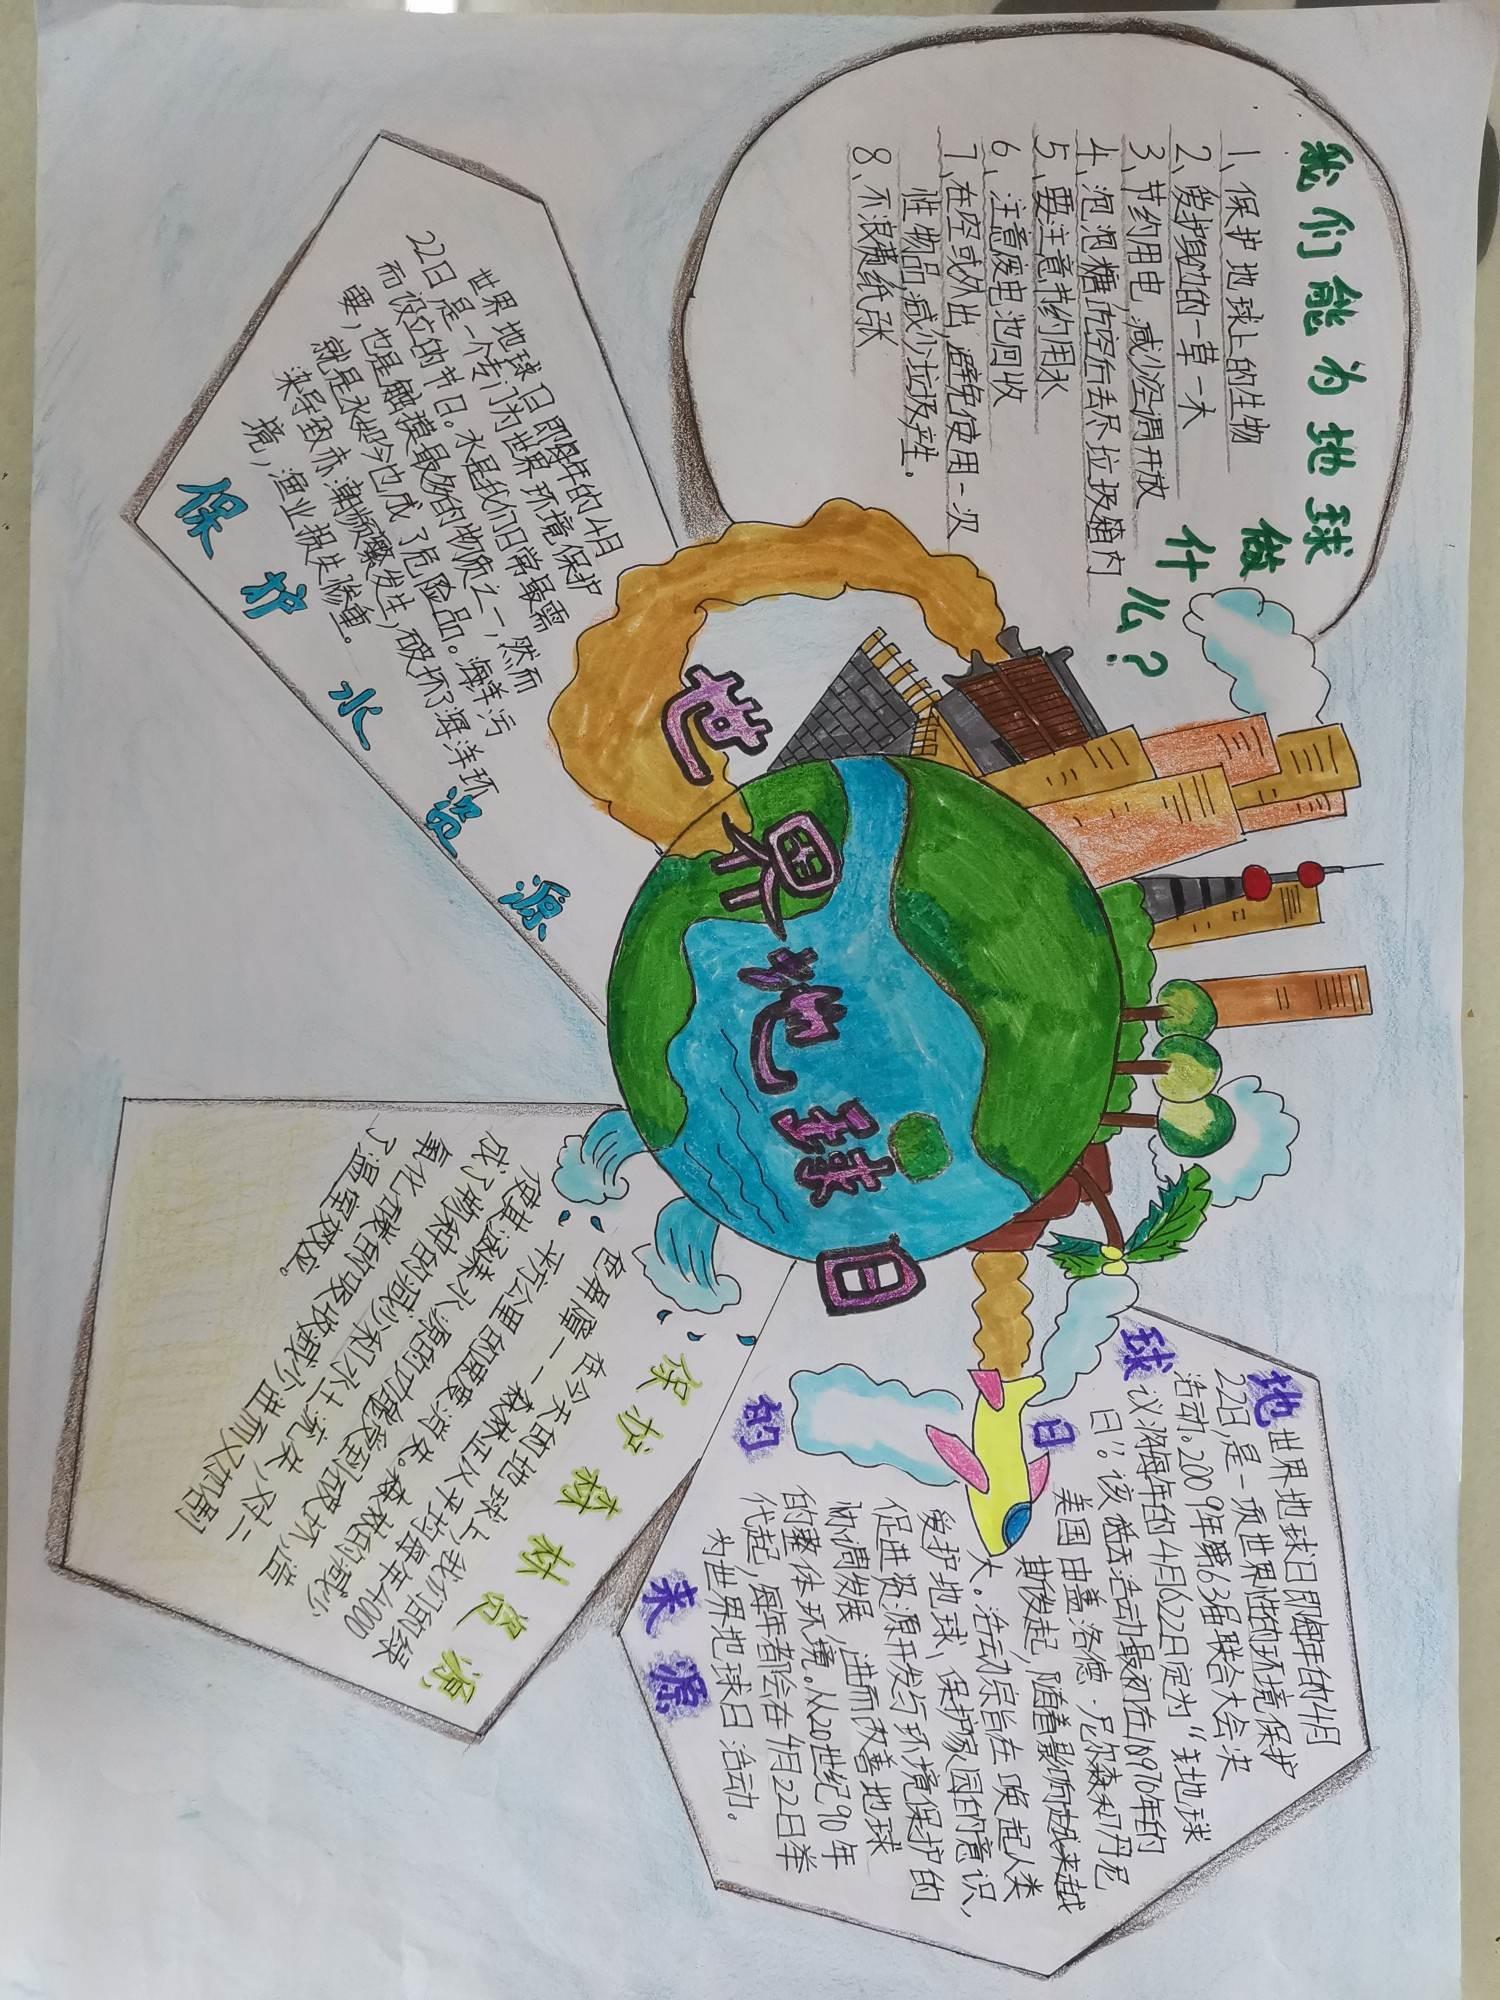 我们能为地球
做
什
么？
1、保护地球上的生物
2、爱护身边的一草一木
3、节约用电，减少空调开放
4、泡泡糖吃完后丢尽垃圾箱内
5、要注意节约用水
6、注意废电池回收
7、在家或外出，避免使用一次
性物品，减少垃圾产生。
8、不浪费纸张
世界地球日
地球日的来源
世界地球日即每年的4月
22日，是一项世界性的环境保护
活动。2009年第63届联合大会决
议将每年的4月22日定为“世界地球
日”。该活动最初在1970年的
美国由盖洛德·尼尔森和丹尼
斯发起，随着影响越来越
大。活动宗旨在唤起人类
爱护地球、保护家园的意识，
促进资源开发与环境保护的
协调发展，进而改善地球
的整体环境。从20世纪90年
代起，每年都会在4月22日举
为世界地球日活动。
保护水资源
世界地球日即每年的4月
22日是一个专门为世界环境保护
而设立的节日。水是我们日常最需
要，也是触摸最多的物质之一，然而
就是水如今也成了危险品。海洋污
染导致赤潮频繁发生，破坏了海洋环
境，渔业损失惨重。
保护森林资源
在今天的地球上，我们的绿
色屏障——森林正以平均每年4000
平方公里的速度消失。森林的减少
使其涵养水源的功能受到破坏，造
成了物种的减少和水土流失，对二
氧化碳的吸收减少进而又加剧
了温室效应。